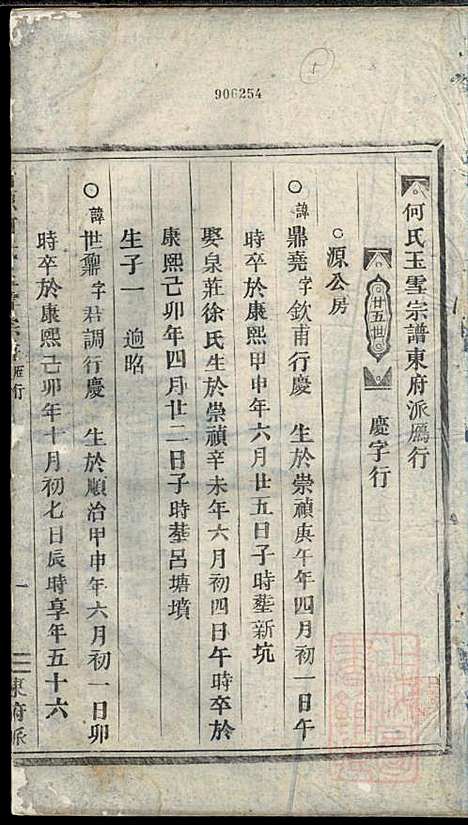 5
906254
何氏玉雪宗譜東府派鴈行
廿五世
慶字行
○源公房
○諱鼎堯字欽甫行慶 生於崇禎庚午年四月初一日午
時卒於康熙甲申年六月廿五日子時塟新坑
娶泉莊徐氏生於崇禎辛未年六月初四日午時卒於
康熙己卯年四月廿二日子時塟呂塘墳
生子一 逈昭
○諱世鼐字君調行慶 生於順治甲申年六月初一日卯
時卒於康熙己卯年十月初七日辰時享年五十六
一
東府派